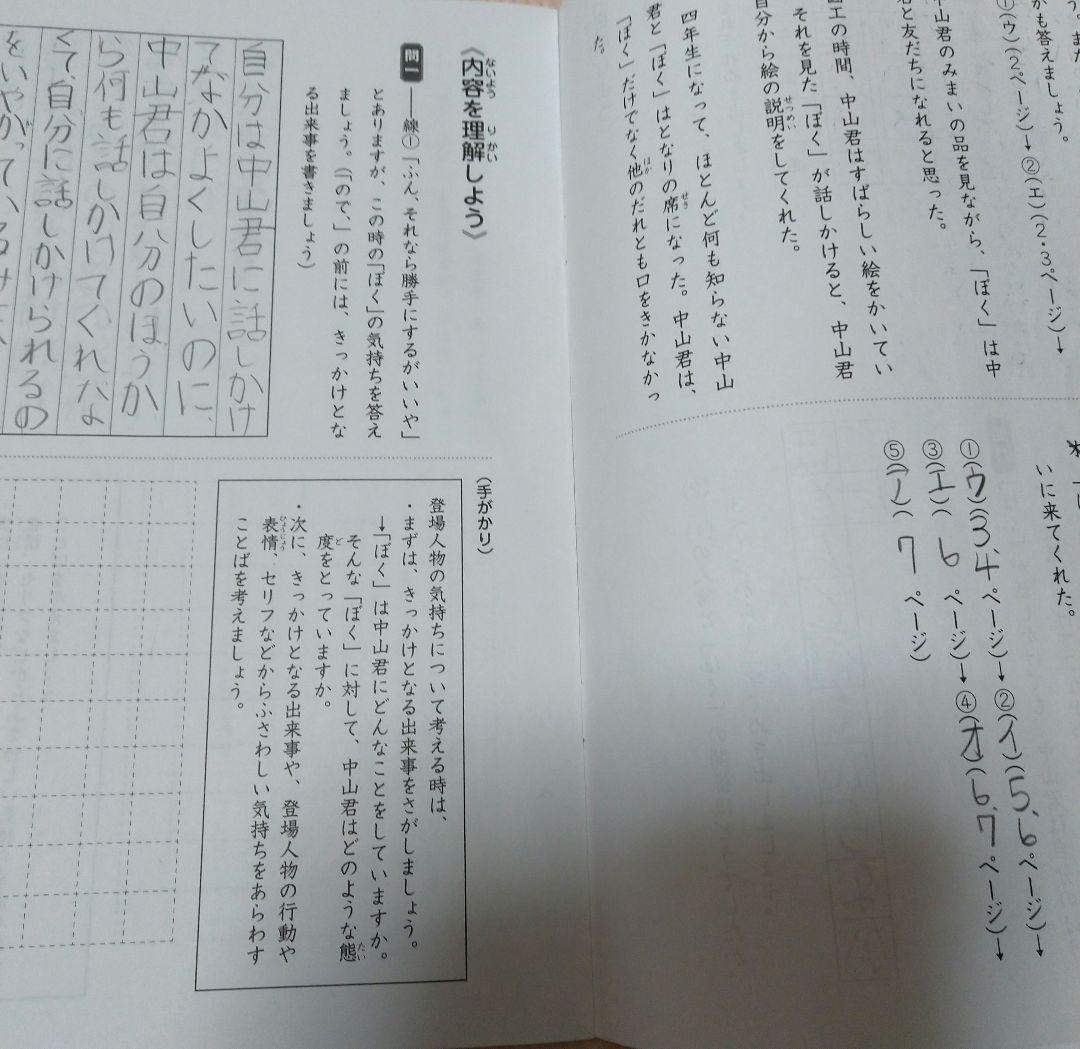 う。また
かも答えましょう。
①(ウ)(2ページ)→ ②(エ)(2・3ページ)→
中山君のみまいの品を見ながら、「ぼく」は中
君と友だちになれると思った。
工の時間、中山君はすばらしい絵をかいてい
それを見た「ぼく」が話しかけると、中山君
自分から絵の説明をしてくれた。
四年生になって、ほとんど何も知らない中山
君と「ぼく」はとなりの席になった。中山君は、
「ぼく」だけでなく他のだれとも口をきかなかっ
た。
いに来てくれた。
①(ウ)(3、4ページ)→ ②(イ)(5、6ページ)→
③(エ)(6ページ)→ ④(オ)(6、7ページ)→
⑤(ア)(7ページ)
《内容を理解しよう》
問一 ――線①「ふん、それなら勝手にするがいいや」
とありますが、この時の「ぼく」の気持ちを答え
ましょう。(「ので、」の前には、きっかけとな
る出来事を書きましょう)
自分は中山君に話しかけ
てなかよくしたいのに、
中山君は自分のほうか
ら何も話しかけてくれな
くて、自分に話しかけられるの
をいやがっている
(手がかり)
登場人物の気持ちについて考える時は、
・まずは、きっかけとなる出来事をさがしましょう。
→「ぼく」は中山君にどんなことをしていますか。
そんな「ぼく」に対して、中山君はどのような態
度をとっていますか。
・次に、きっかけとなる出来事や、登場人物の行動や
表情、セリフなどからふさわしい気持ちをあらわす
ことばを考えましょう。